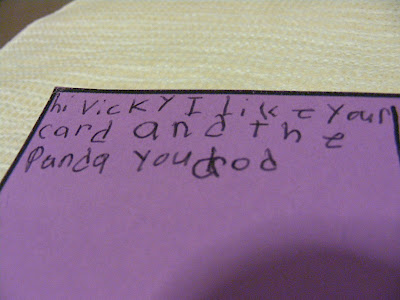 hi Vicky I like your
card and the
Panda you drod